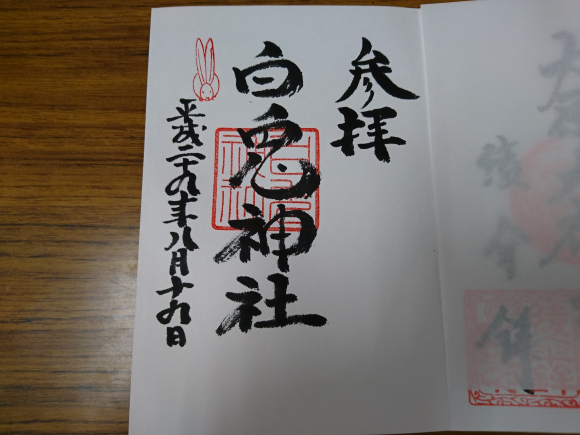 参拝
白兎神社
平成二十九年八月十九日